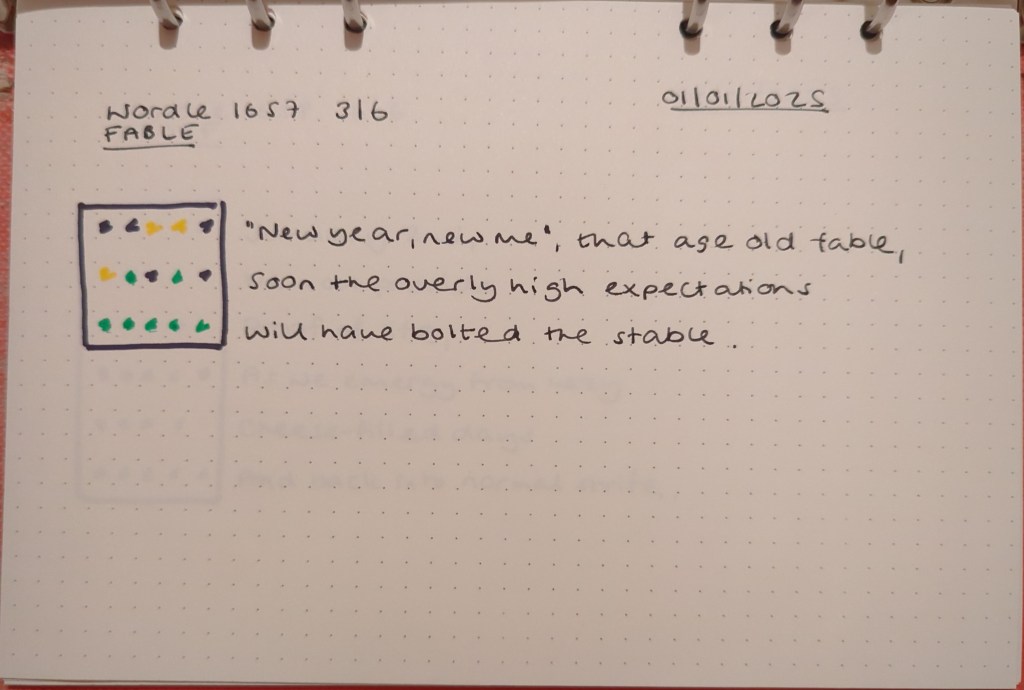 Wordle 1657 3/6
01/01/2025
FABLE
"New year, new me", that age old fable,
soon the overly high expectations
will have bolted the stable.